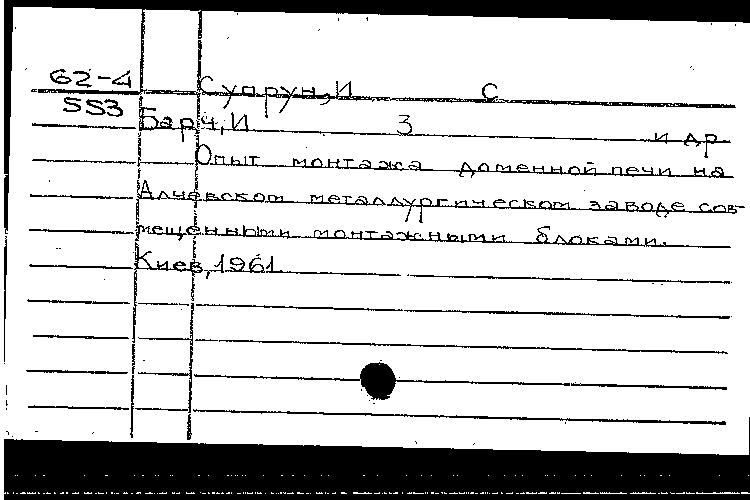 62-4 Супрун, И С
553 Барч, И З и др
Опыт монтажа доменной печи на
Алчевском металлургическом заводе сов-
мещенными монтажными блоками.
Киев, 1961